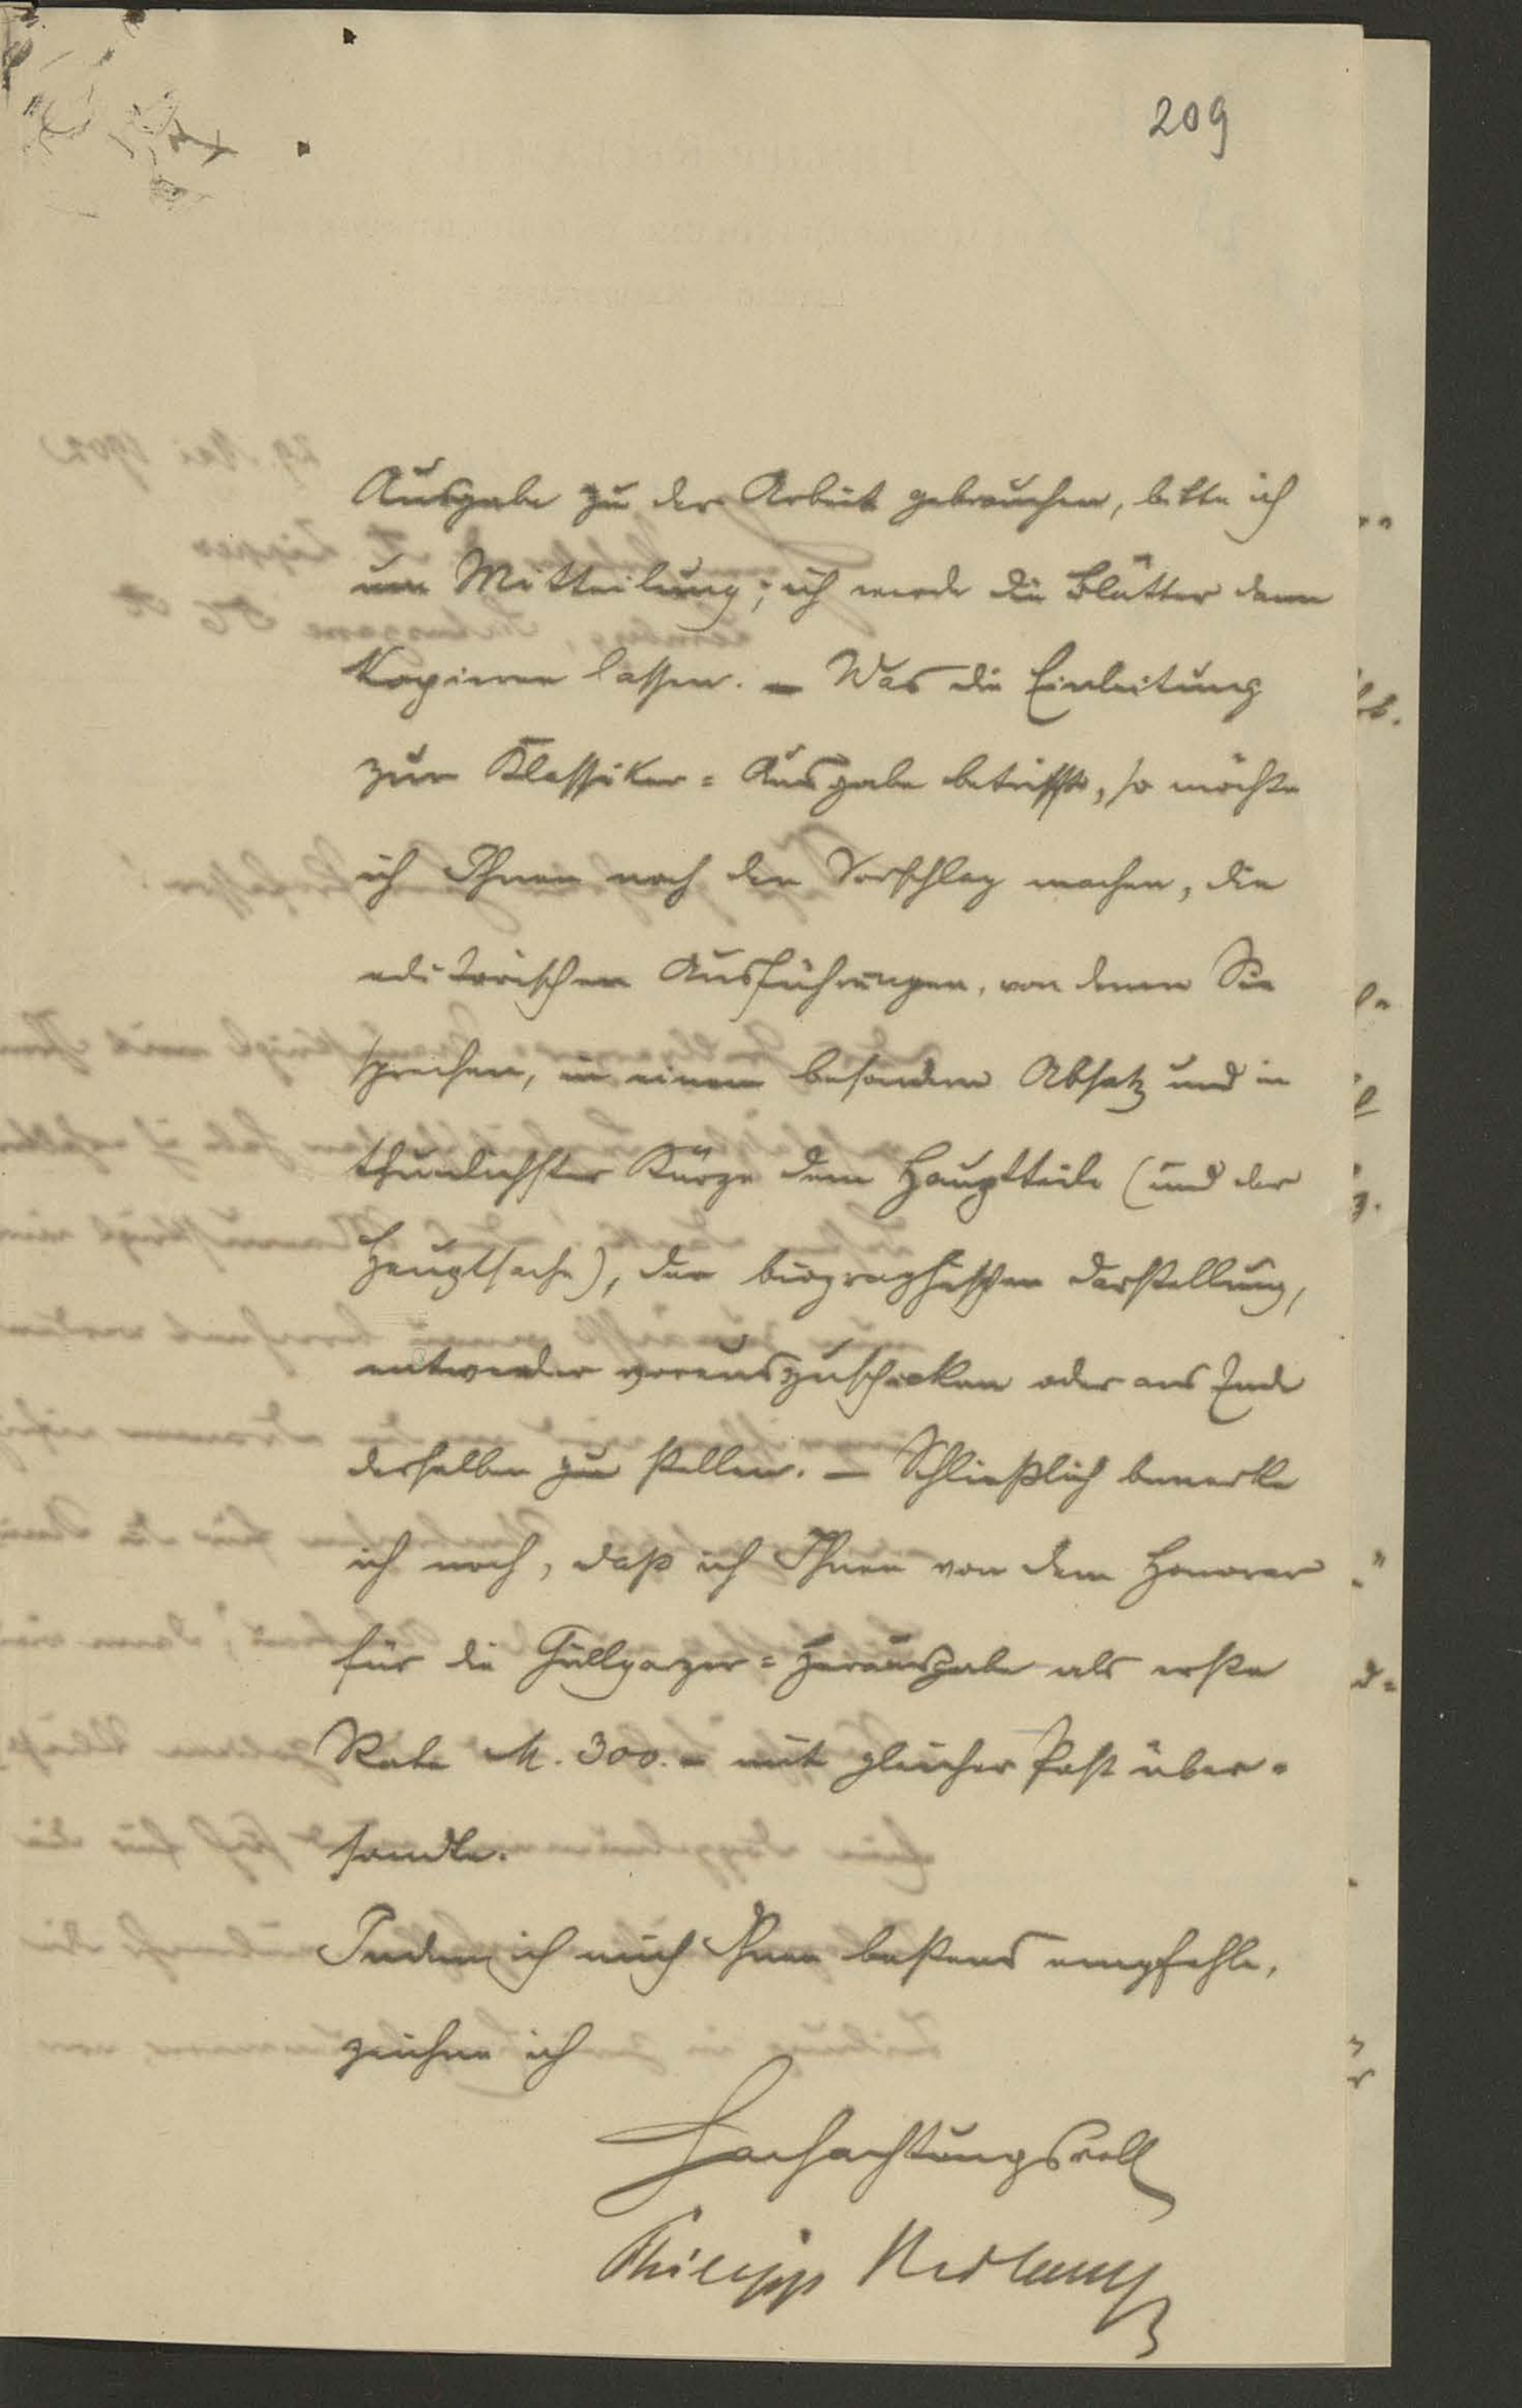 209
Ausgabe zu der Arbeit gebrauchen, bitte ich
um Mitteilung; ich werde die Blätter dann
kopieren lassen. – Was die Einleitung
zur Klassiker-Ausgabe betrifft, so möchte
ich Ihnen noch den Vorschlag machen, die
editorischen Ausführungen, von denen Sie
sprechen, in einem besondern Absatz und in
thunlichster Kürze dem Hauptteile (und der
Hauptsache), der biographischen Darstellung,
entweder vorauszuschicken oder ans Ende
derselben zu stellen. – Schließlich bemerke
ich noch, daß ich Ihnen von dem Honorar
für die Grillparzer-Herausgabe als erste
Rate M. 300.– mit gleicher Post über-
sandte.
Indem ich mich Ihnen bestens empfehle,
zeichne ich
Hochachtungsvoll
Philipp